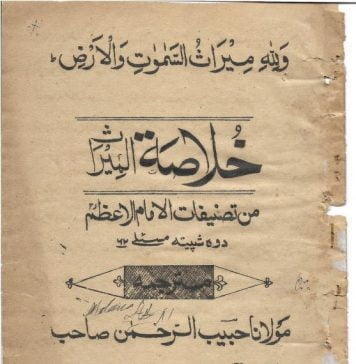 وَلِلّٰهِ مِيْرَاثُ السَّمٰوٰتِ وَالْاَرْضِ ط
خُلاصَة المِيْرَاث
من تصنيفات الامام الاعظم
دوه شپيته مسئلے ٦٢
مترجمه
مَولاناحبيب الرّحمٰن صاحب